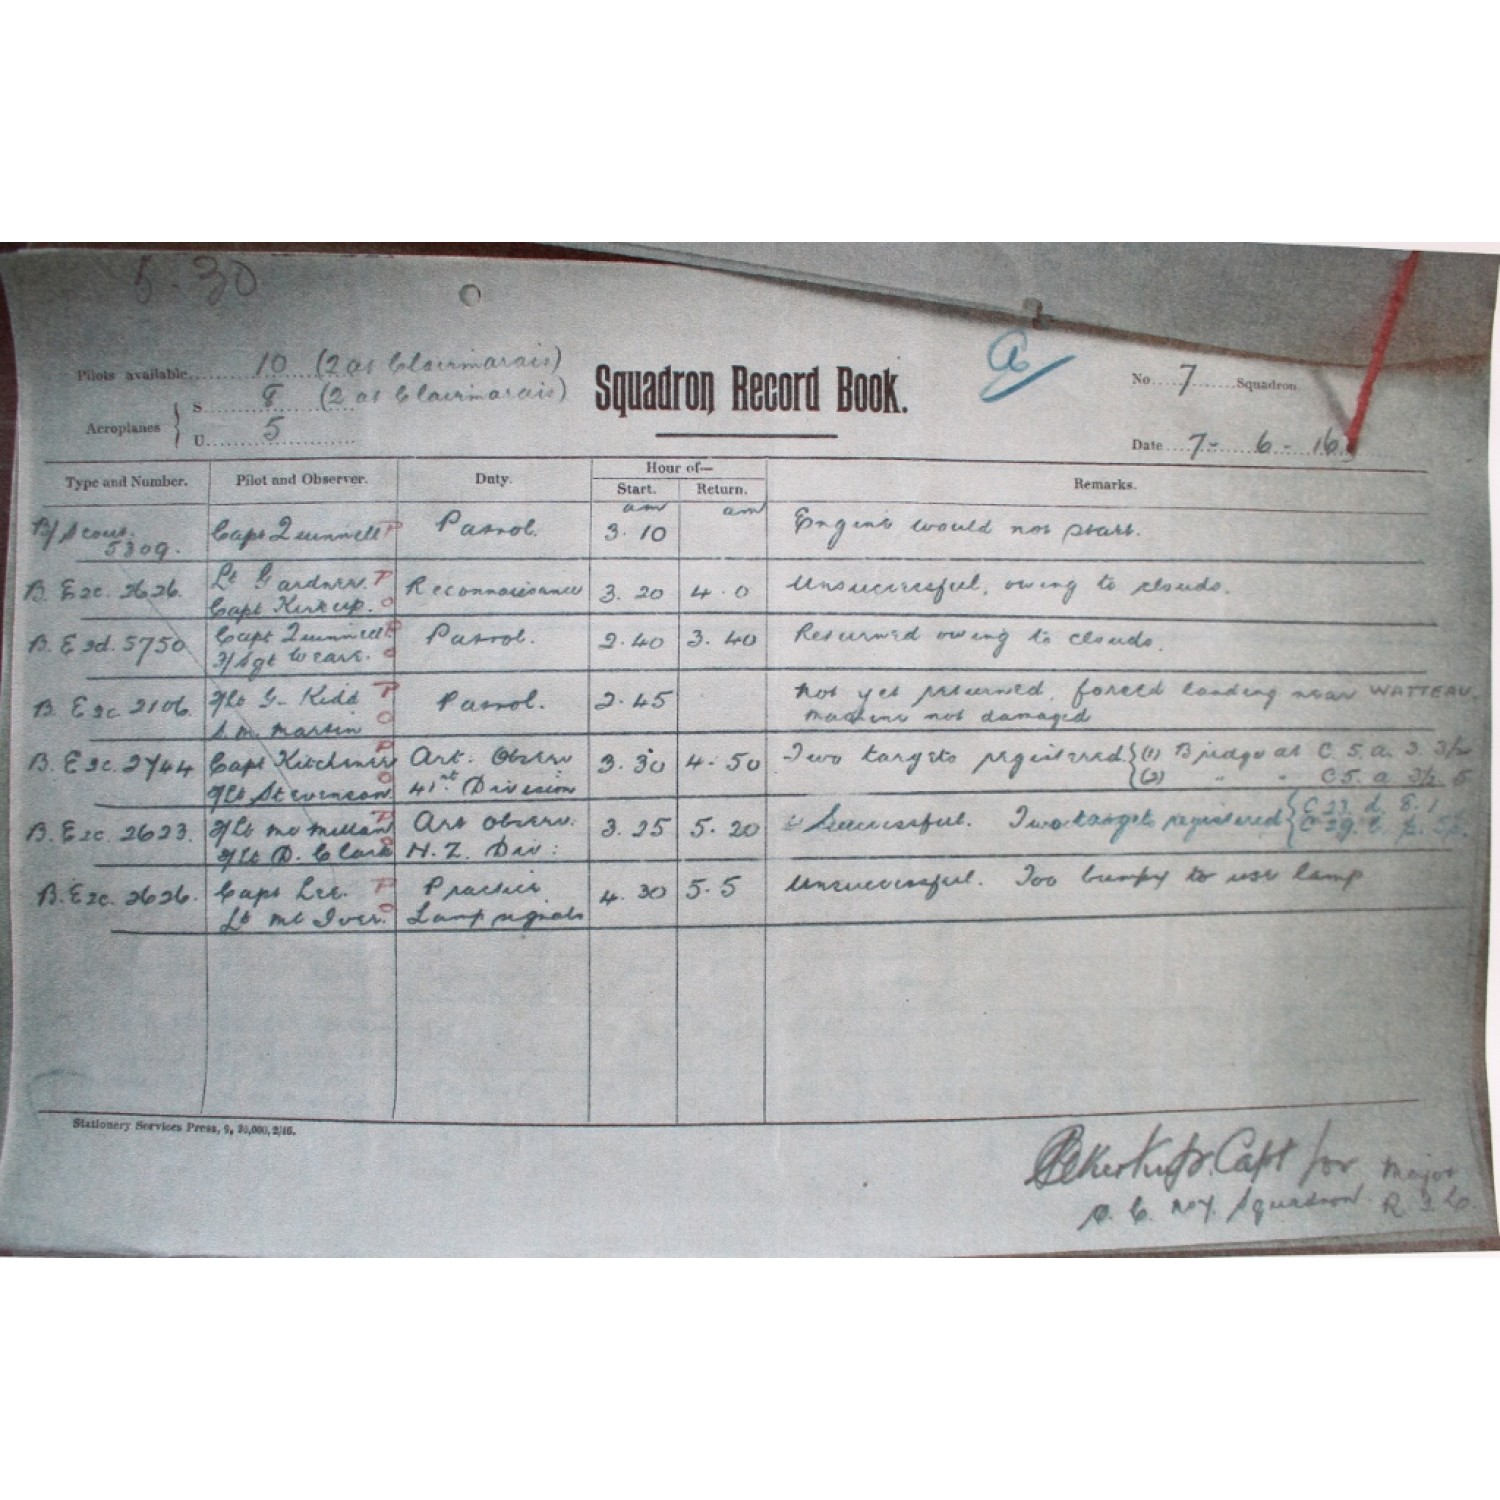 5.30
Pilots available 10 (2 at Clairmarais)
Aeroplanes { S. 8 (2 at Clairmarais)
U. 5
Squadron Record Book.
a
No. 7 Squadron.
Date 7 - 6 - 16.
Type and Number. Pilot and Observer. Duty. Hour of— Remarks.
Start. Return.
am am
B/Scout. Capt Quinnell P Patrol. 3.10 Engine would not start.
5309.
B.E 2c. 2626. Lt Gardner. P Reconnaissance 3.20 4.0 Unsuccessful, owing to clouds.
Capt Kirkup. O
B.E 2d. 5750 Capt Quinnell P Patrol. 2.40 3.40 Returned owing to clouds.
F/Sgt Weare. O
B E 2c 2106. 2/Lt G. Kidd P Patrol. 2.45 not yet returned, forced landing near WATTEAU.
S.M. Martin O machine not damaged
B.E 2c. 2744 Capt Kitchener P Art. Observ 3.30 4.50 Two targets registered { (1) Bridge at C.5.a. 3. 3½
2/Lt Stevenson O 41st Division (2) " " C5.a 3½ 5
B.E 2c. 2623. 2/Lt McMillan P Art observ. 3.25 5.20 Successful. Two targets registered { C 23. d. 8. 1
2/Lt D. Clark O N.Z. Div: C 29. b.
B.E 2c. 2626. Capt Lee. P Practice 4.30 5.5 Unsuccessful. Too bumpy to use lamp
Lt McIver. O Lamp signals
Stationery Services Press, 9, 30,000, 2/16.
Kirkup. Capt for Major
O.C. No 7. Squadron R.F.C.